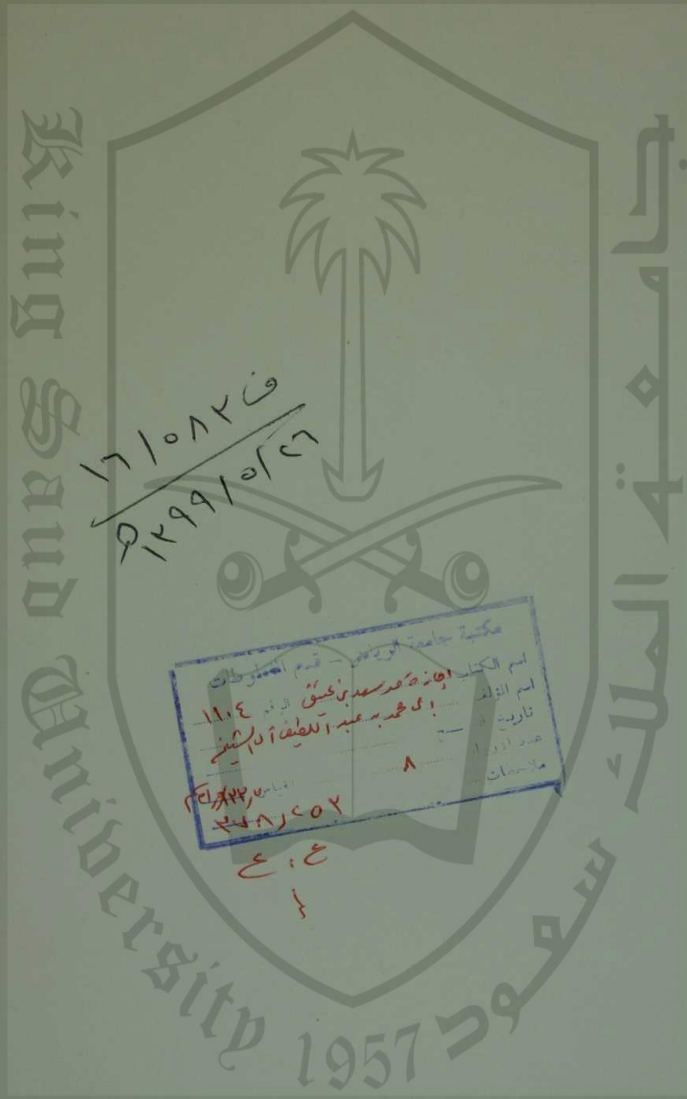 King Saud University 1957
جامعة الملك سعود
ف ١٦/٥٨٢
١٣٩٩/٥/٢٦ھ
مكتبة جامعة الرياض – قسم المخطوطات
اسم الكتاب إجازة من سعد بن عتيق الرقم ١١٠٤
اسم المؤلف إلى محمد بن عبد اللطيف آل الشيخ
تاريخ
عدد الأوراق ٨
ملاحظات
ع ، ع